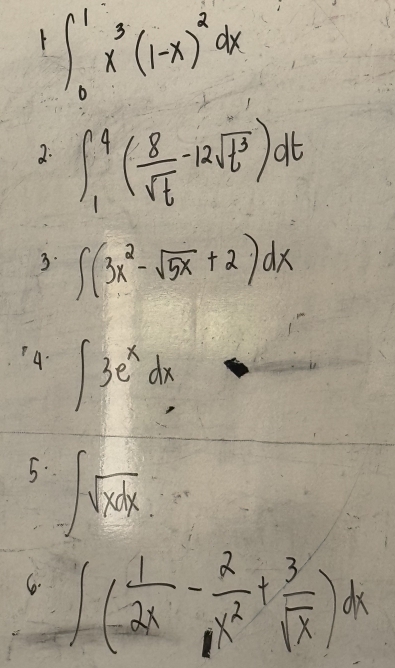 1. ∫₀¹ x³ (1-x)² dx
2. ∫₁⁴ (8/√t - 12√t³) dt
3. ∫(3x² - √5x + 2) dx
4. ∫ 3eˣ dx
5. ∫ √xdx
6. ∫ (1/2x - 2/x² + 3/√x) dx